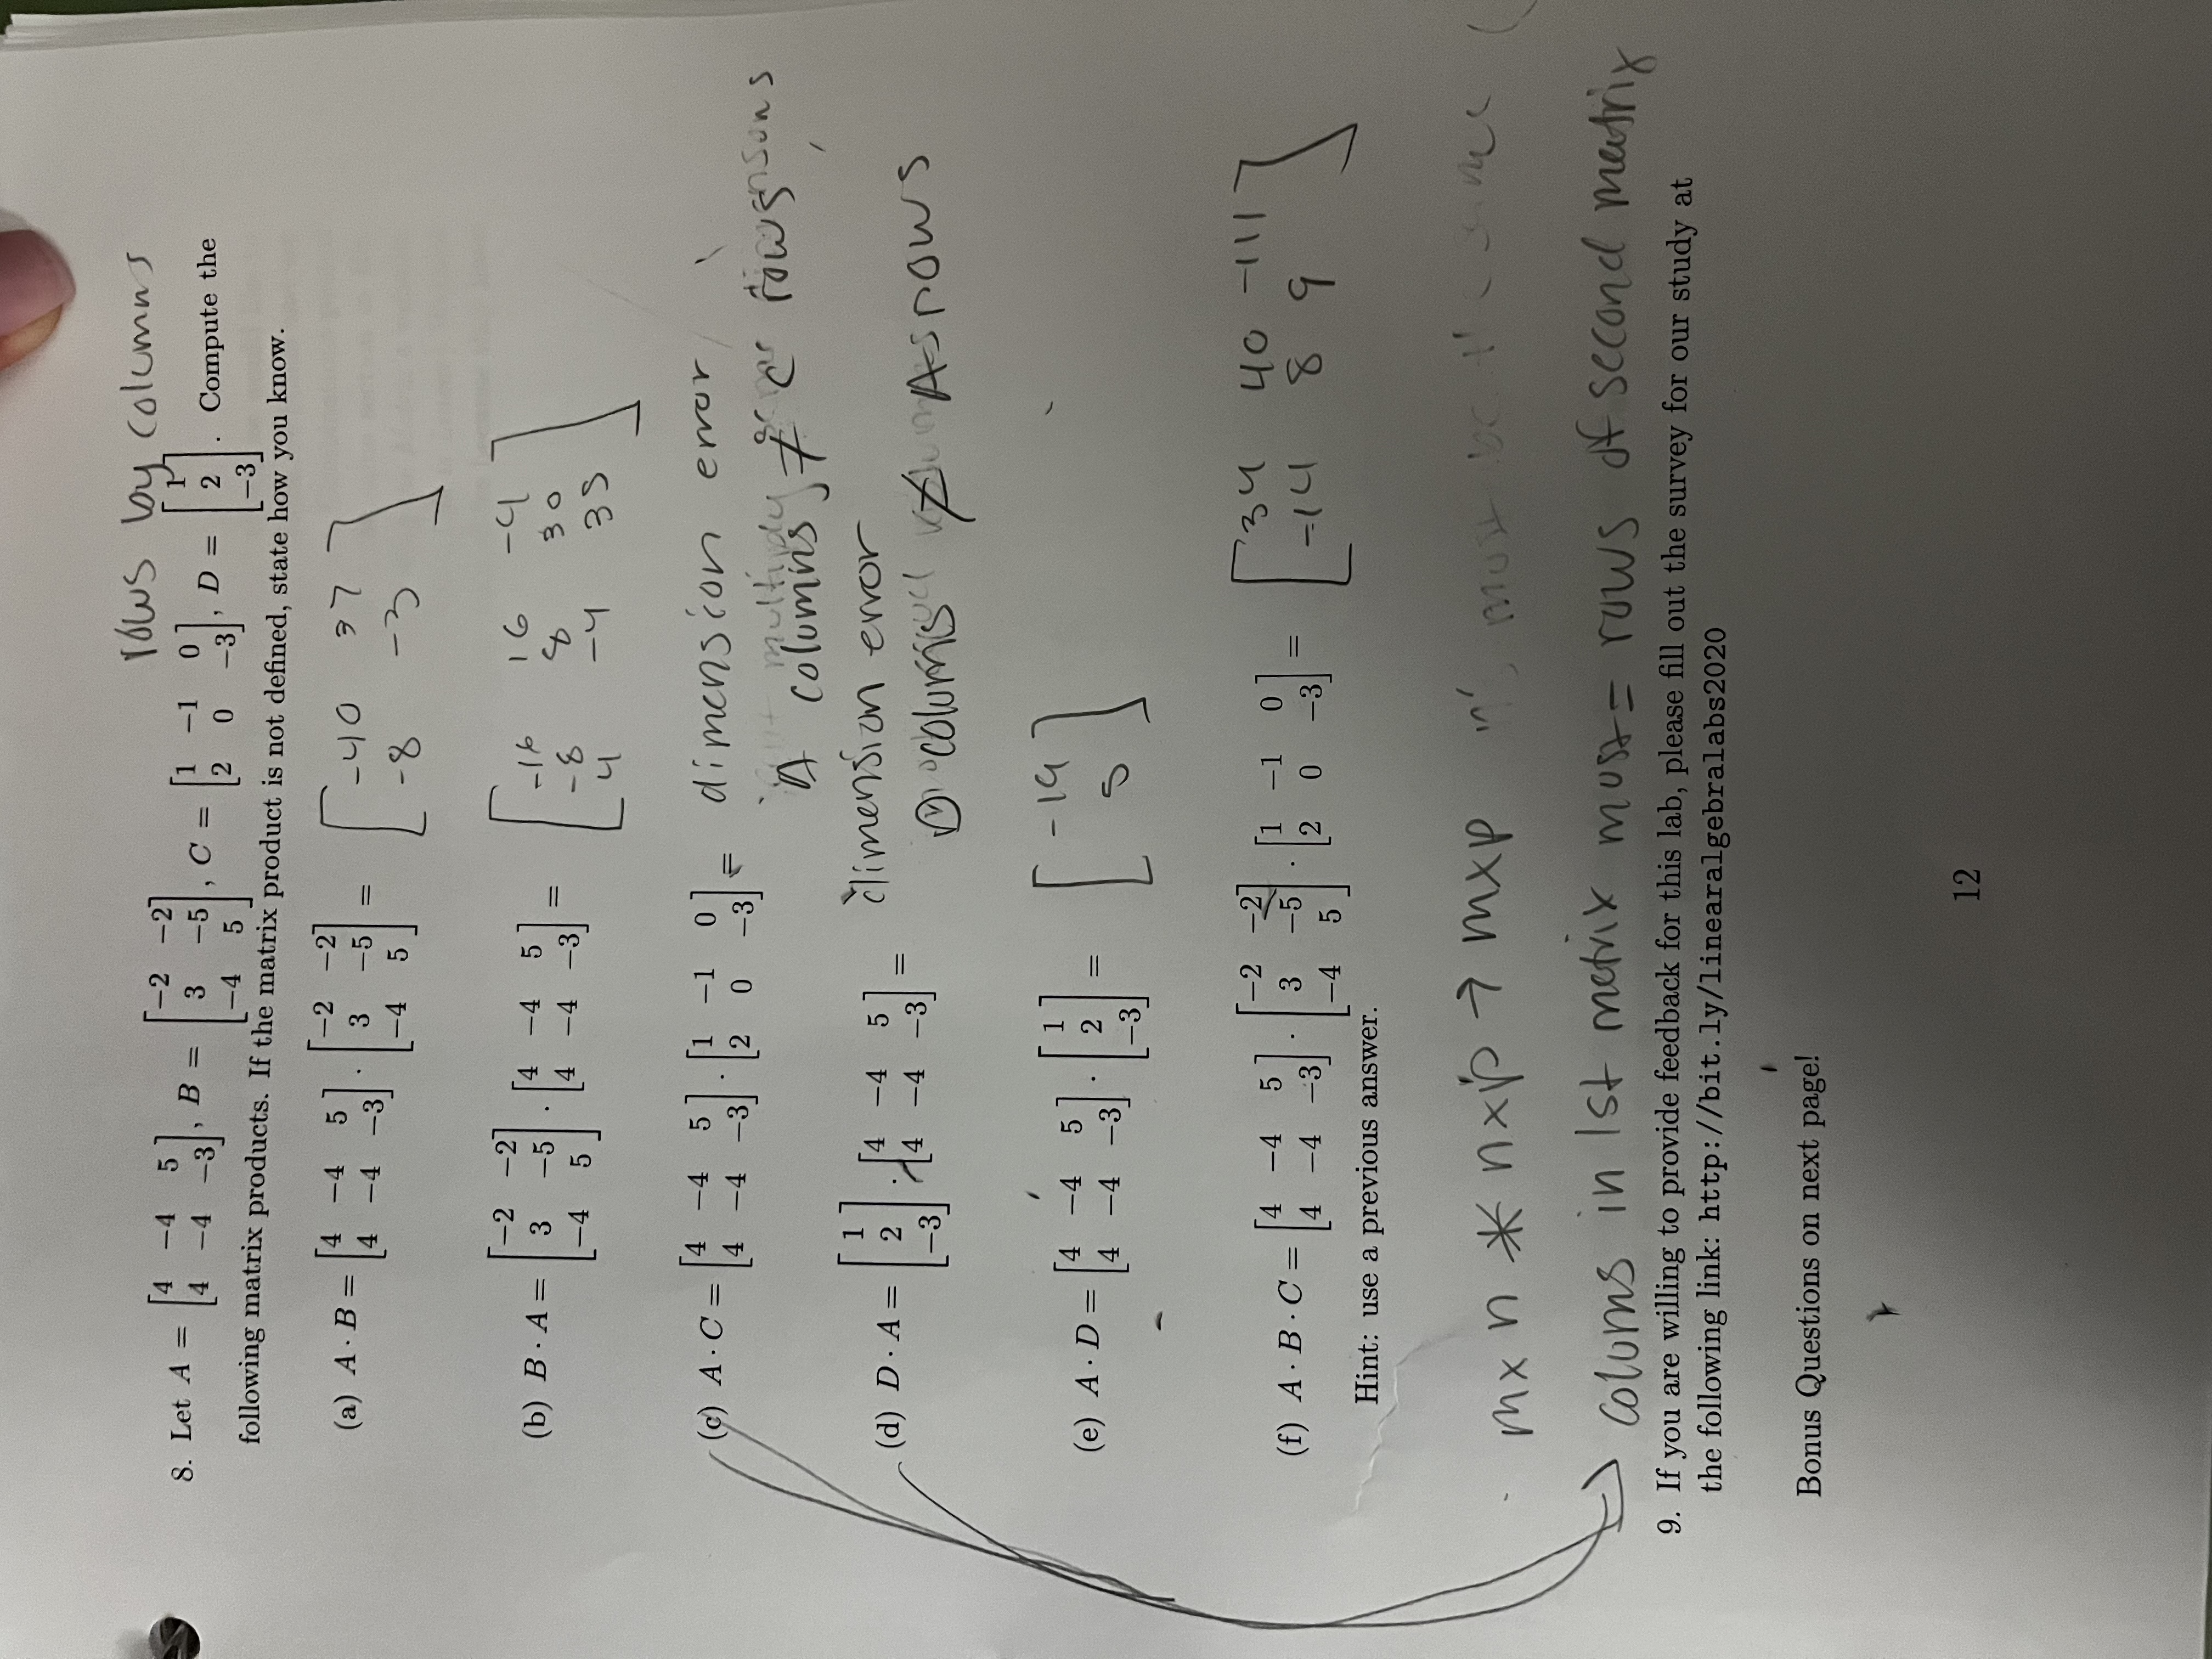 rows by columns
8. Let A = [4 −4 5; 4 −4 −3], B = [−2 −2; 3 −5; −4 5], C = [1 −1 0; 2 0 −3], D = [1; 2; −3]. Compute the
following matrix products. If the matrix product is not defined, state how you know.
(a) A · B = [4 −4 5; 4 −4 −3] · [−2 −2; 3 −5; −4 5] = [-40 37; -8 -3]
(b) B · A = [−2 −2; 3 −5; −4 5] · [4 −4 5; 4 −4 −3] = [-16 16 -4; -8 8 30; 4 -4 35]
(c) A · C = [4 −4 5; 4 −4 −3] · [1 −1 0; 2 0 −3] = dimension error
A columns ≠ C rows
(d) D · A = [1; 2; −3] · [4 −4 5; 4 −4 −3] = dimension error
D columns ≠ As rows
(e) A · D = [4 −4 5; 4 −4 −3] · [1; 2; −3] = [-19; 5]
(f) A · B · C = [4 −4 5; 4 −4 −3] · [−2 −2; 3 −5; −4 5] · [1 −1 0; 2 0 −3] = [34 40 -111; -14 8 9]
Hint: use a previous answer.
mxn * nxp → mxp must be the same
colums in 1st metrix must = rows of second matrix
9. If you are willing to provide feedback for this lab, please fill out the survey for our study at
the following link: http://bit.ly/linearalgebralabs2020
Bonus Questions on next page!
12